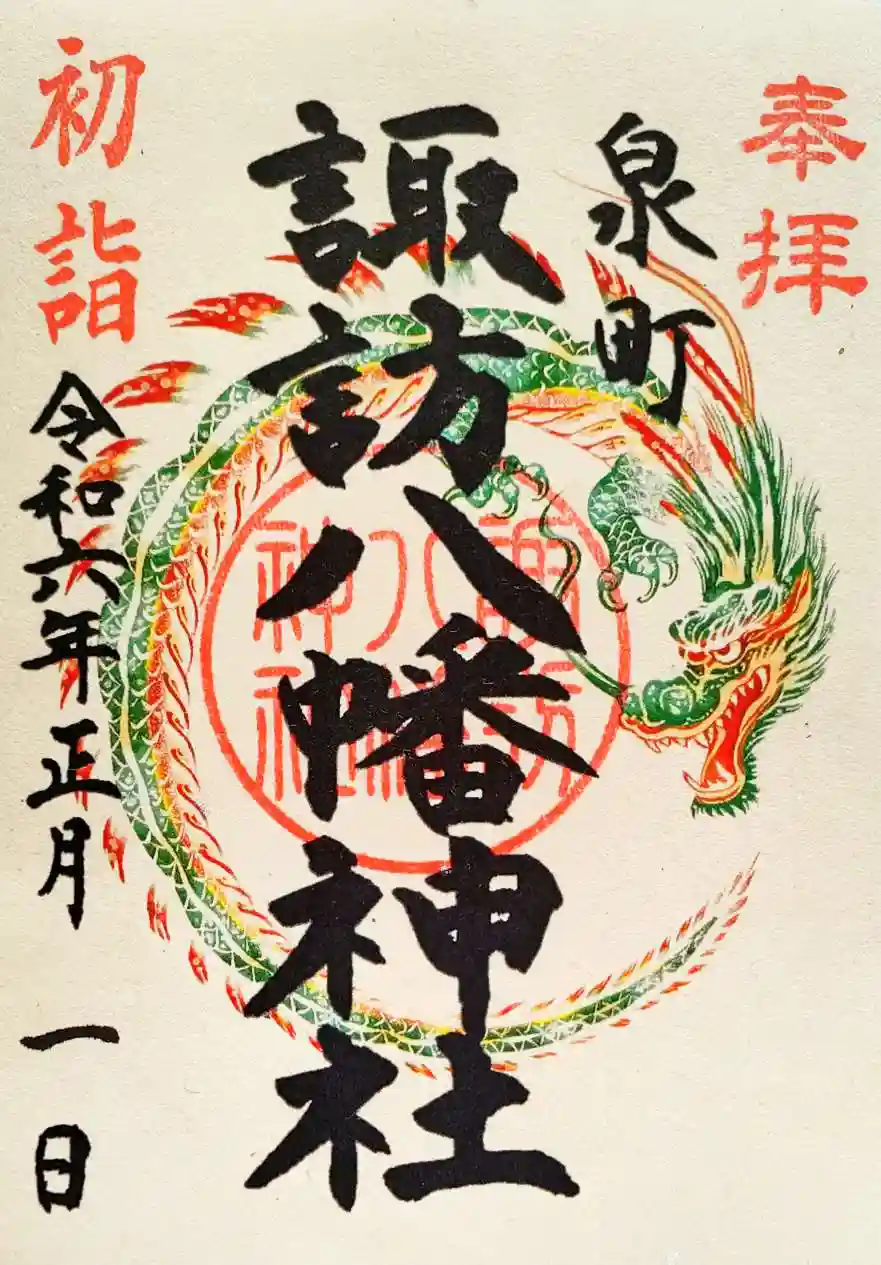 奉拝
泉町
諏訪八幡神社
初詣
令和六年正月一日
諏訪
八幡
神社